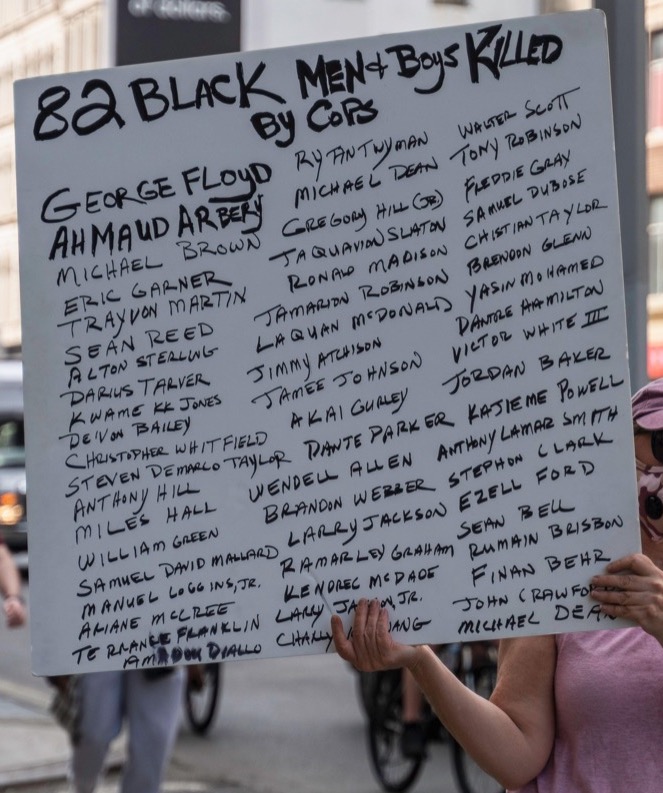 of dollars.
82 BLACK MEN & Boys KILLED
By COPS
GEORGE FLOYD
AHMAUD ARBERY
MICHAEL BROWN
ERIC GARNER
TRAYVON MARTIN
SEAN REED
ALTON STERLING
DARIUS TARVER
KWAME KK JONES
DEIVON BAILEY
CHRISTOPHER WHITFIELD
STEVEN DEMARCO TAYLOR
ANTHONY HILL
MILES HALL
WILLIAM GREEN
SAMUEL DAVID MALLARD
MANUEL LOGGINS, JR.
ARIANE MCCREE
TERRANCE FRANKLIN
AMADOU DIALLO
RYAN TWYMAN
MICHAEL DEAN
GREGORY HILL (JR)
JAQUAVION SLATON
RONALD MADISON
JAMARION ROBINSON
LAQUAN McDONALD
JIMMY ATCHISON
JAMEE JOHNSON
AKAI GURLEY
DANTE PARKER
WENDELL ALLEN
BRANDON WEBBER
LARRY JACKSON
RAMARLEY GRAHAM
KENDREC McDADE
LARRY JA ON, JR.
CHARLY ANG
WALTER SCOTT
TONY ROBINSON
FREDDIE GRAY
SAMUEL DUBOSE
CHISTIAN TAYLOR
BRENDON GLENN
YASIN MOHAMED
DANTRE HAMILTON
VICTOR WHITE III
JORDAN BAKER
KAJIEME POWELL
ANTHONY LAMAR SMITH
STEPHON CLARK
EZELL FORD
SEAN BELL
RUMAIN BRISBON
FINAN BEHR
JOHN CRAWFOR
MICHAEL DEAN